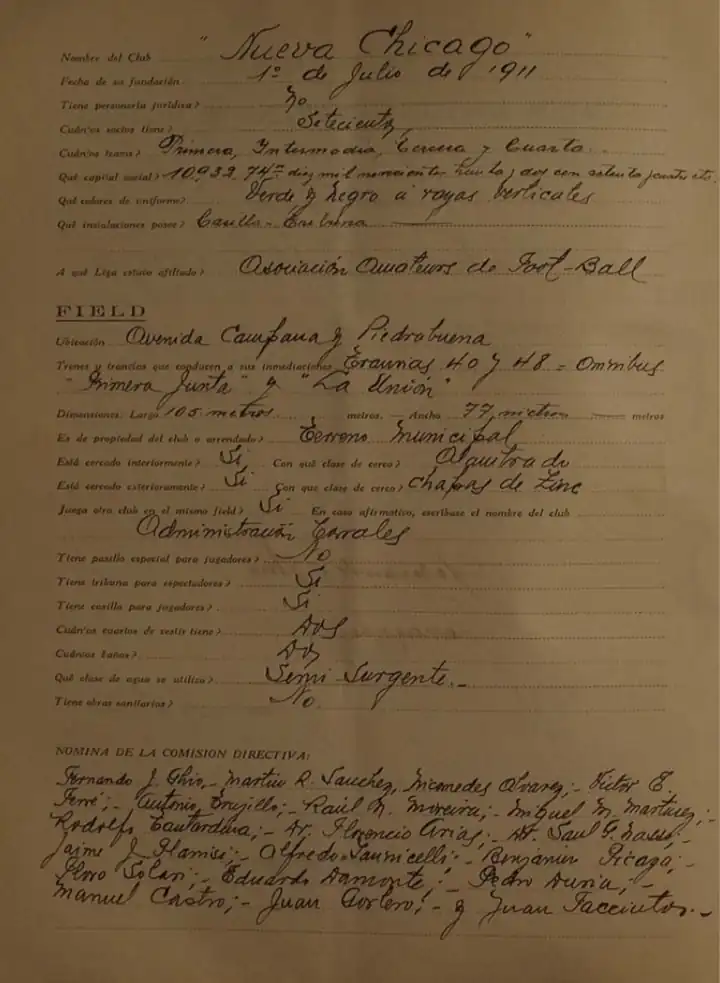 Nombre del Club "Nueva Chicago"
Fecha de su fundación 1º de Julio de 1911
Tiene personaria jurídica? No
Cuántos socios tiene? Setecientos
Cuántos teams? Primera, Intermedia, Tercera y Cuarta
Qué capital social? 10932,74 diez mil novecientos treinta y dos con setenta y cuatro ctv.
Qué colores de uniforme? Verde y Negro a rayas verticales
Qué instalaciones posee? Casilla - Tribuna
A qué Liga estuvo afiliado? Asociación Amateurs de Foot-Ball
FIELD
Ubicación Avenida Campana y Piedrabuena
Trenes y tranvías que conducen a sus inmediaciones Tranvias 40 y 48 = Omnibus
"Primera Junta" y "La Unión"
Dimensiones. Largo 105 metros metros. — Ancho 77 metros metros
Es de propiedad del club o arrendado? Terreno Municipal
Está cercado interiormente? Si Con qué clase de cerco? Alquitrado
Está cercado exteriormente? Si Con que clase de cerco? Chapas de Zinc
Juega otro club en el mismo field? Si En caso afirmativo, escríbase el nombre del club
Administración Corrales
Tiene pasillo especial para jugadores? No
Tiene tribuna para espectadores? Si
Tiene casilla para jugadores? Si
Cuántos cuartos de vestir tiene? Dos
Cuántos baños? Dos
Qué clase de agua se utiliza? Semi-Surgente.-
Tiene obras sanitarias? No
NOMINA DE LA COMISION DIRECTIVA:
Fernando J. Ghio,- Martin R. Sanchez, Nicomedes Alvarez;- Victor E.
Ferré;- Antonio Trujillo;- Raúl N. Moreira;- Miguel M. Martinez;-
Rodolfo;- Dr. Florencio Arias;- Dr. Saul G.
Jaime J.;- Alfredo;- Benjamin Picaza;-
Solari;- Eduardo Damonte;- Pedro Duria;-
Manuel Castro;- Juan;- y Juan